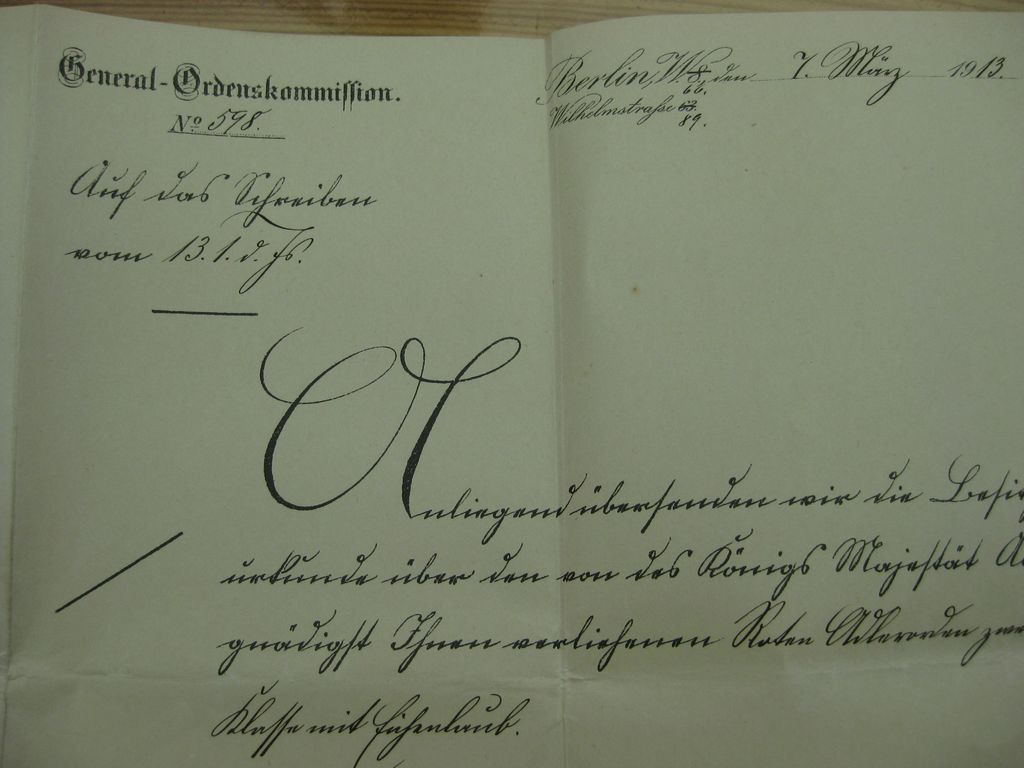 General-Ordenskommission.
Berlin, W. 8, den 7. März 1913.
66.
No 598.
Wilhelmstrasse 63.
89.
Auf das Schreiben
vom 13. 1. d. Js.
Anliegend übersenden wir die Besitz
urkunde über den von des Königs Majestät Al
gnädigst Ihnen verliehenen Roten Adlerorden zwe
Klasse mit Eichenlaub.